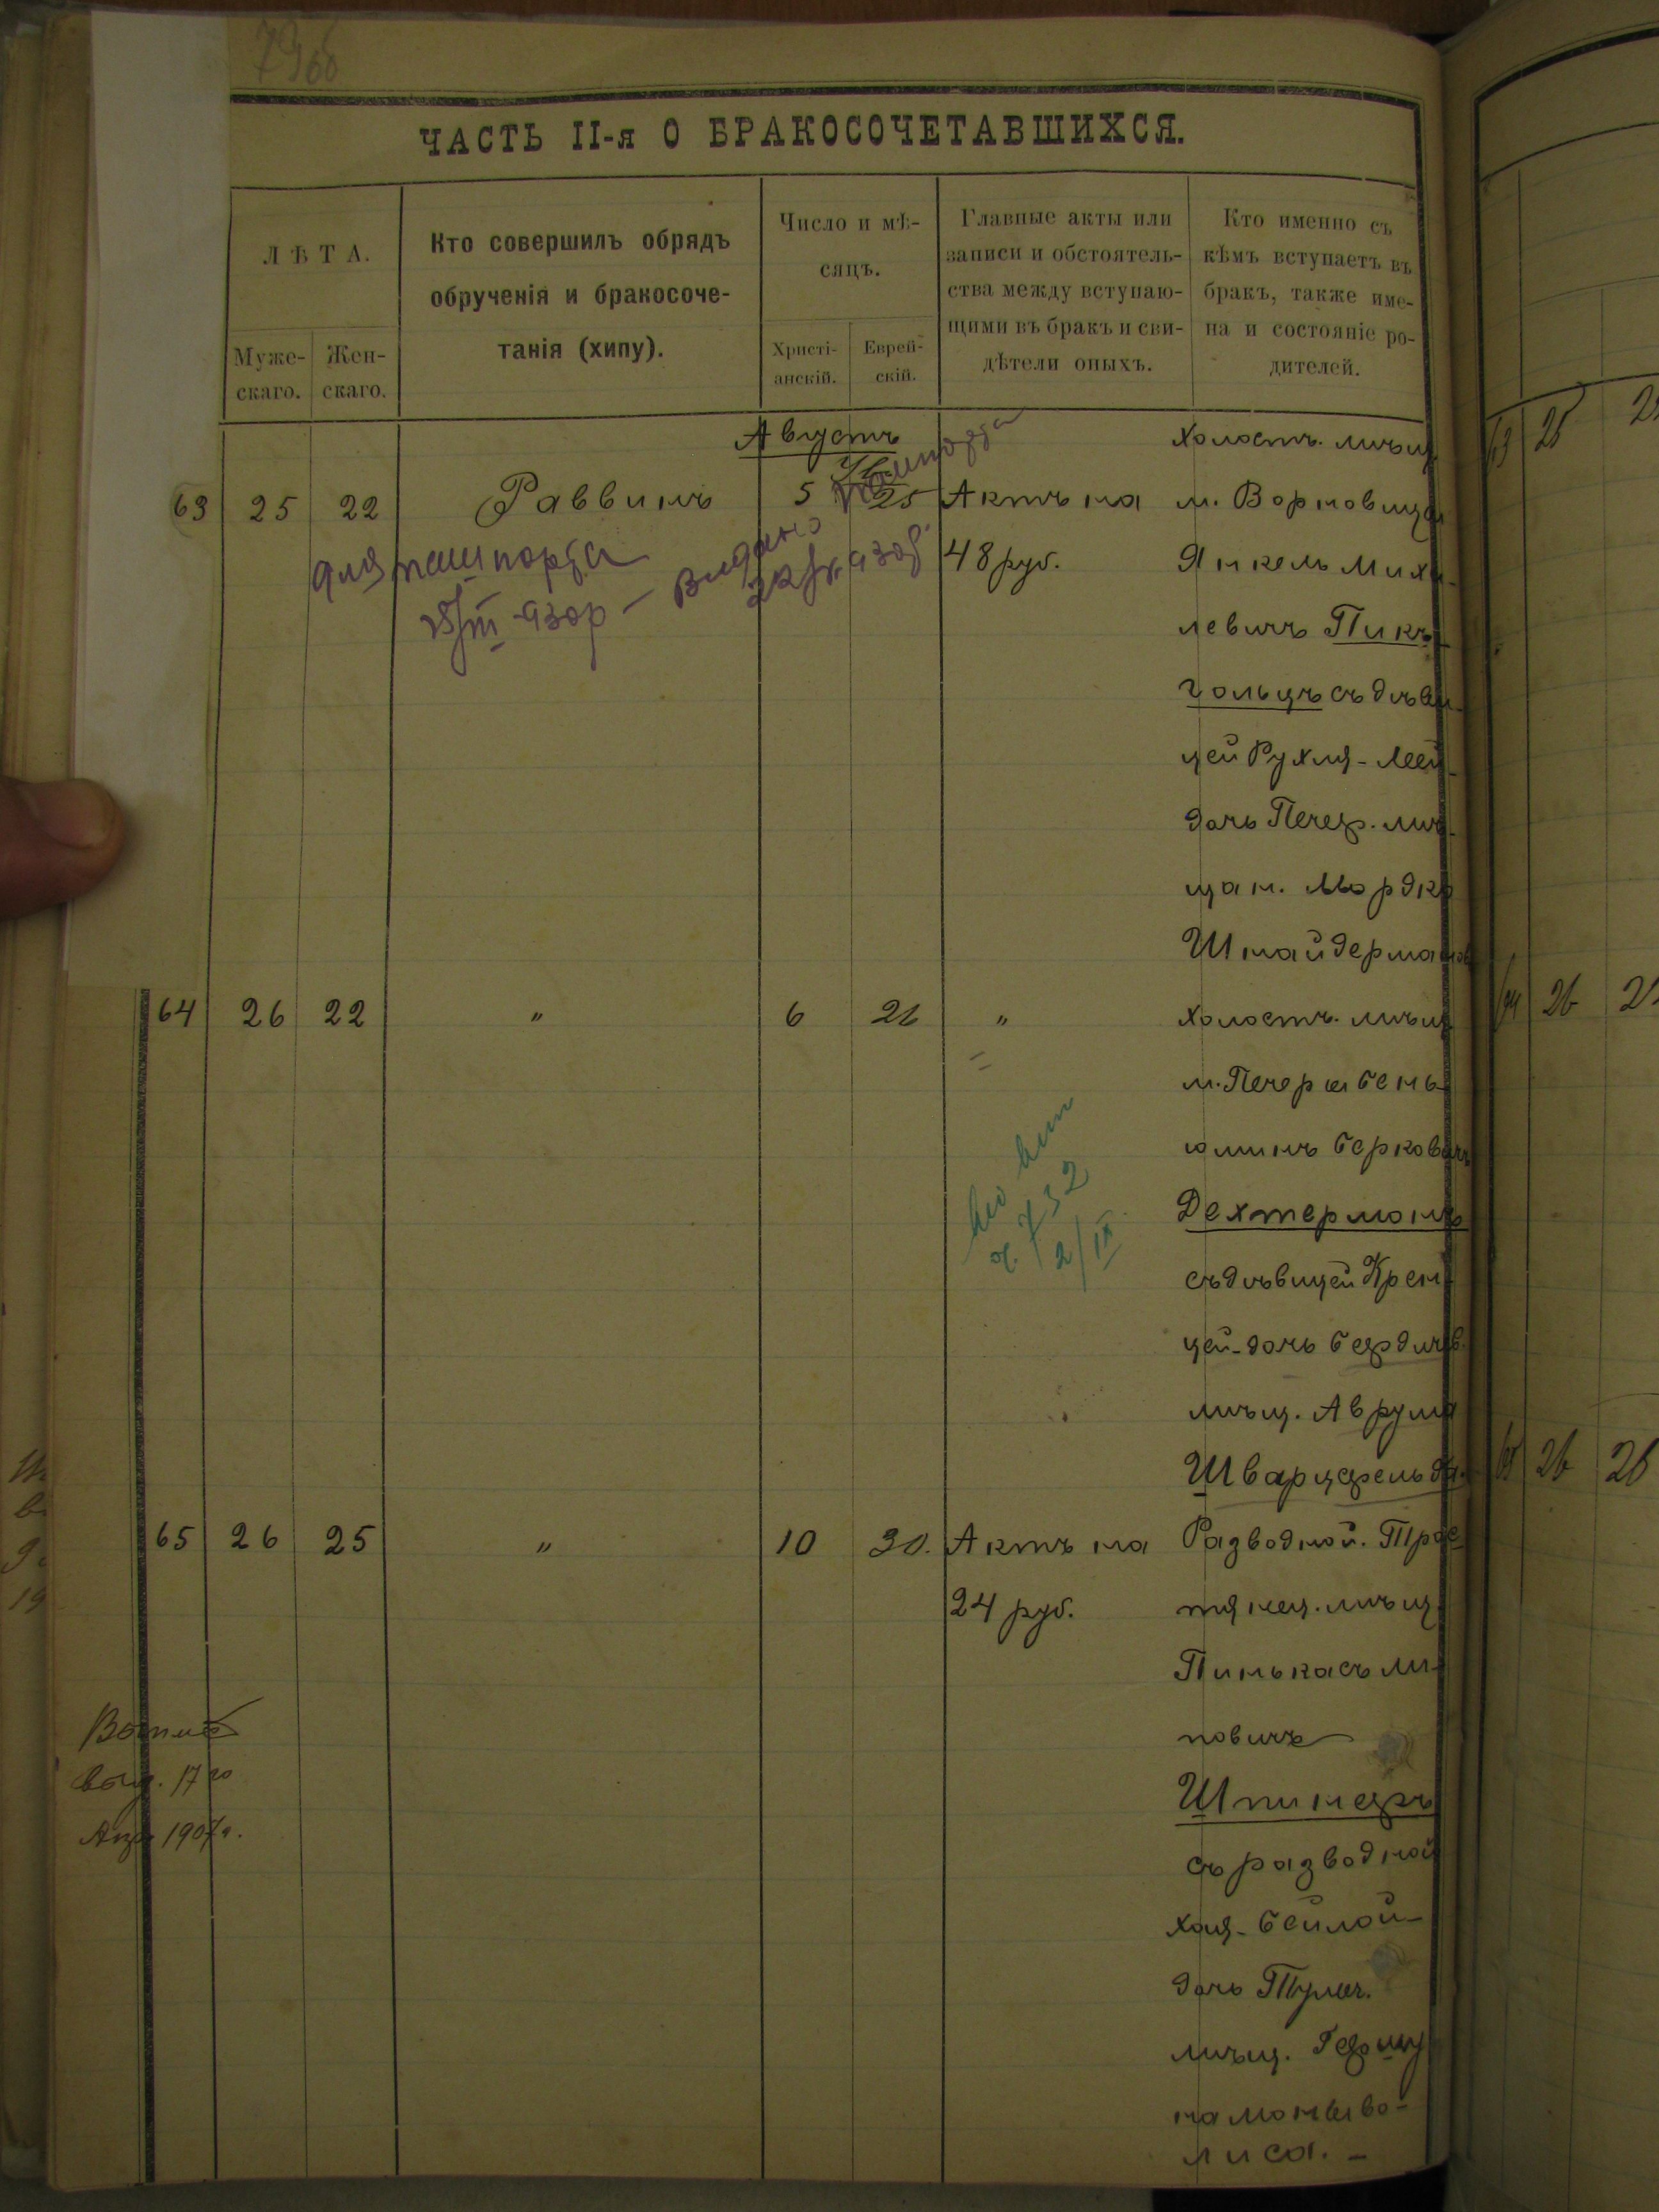 ЧАСТЬ II-я О БРАКОСОЧЕТАВШИХСЯ.
ЛѢТА.
Муже-
скаго.
Жен-
скаго.
Кто совершилъ обрядъ
обрученія и бракосоче-
танія (хипу).
Число и мѣ-
сяцъ.
Христі-
анскій.
Еврей-
скій.
Главные акты или
записи и обстоятель-
ства между вступаю-
щими въ бракъ и сви-
дѣтели оныхъ.
Кто именно съ
кѣмъ вступаетъ въ
бракъ, также име-
на и состояніе ро-
дителей.
Августъ
63 25 22 Раввинъ 5 25 Актъ на
48 руб.
холост. мѣщ
м. Ворновицы
Янкель Михе-
левичъ Пикъ-
гольцъ съ дѣви-
цей Рухля-Леей
дочь Печер. мѣ-
щан. Мордко
Шнайдермана
для пашпорта
64 26 22 " 6 26 "
холост. мѣщ
м. Печеры Бень-
юминъ Берковичъ
Дехтерманъ
съ дѣвицей Крен-
цей-дочь Бердич.
мѣщ. Аврума
Шварцфельда.
732
2/IX
65 26 25 " 10 30. Актъ на
24 руб.
Разводной. Трос-
тянец. мѣщ.
Пинькасъ Ли-
повичъ
Шпинеръ
съ разводной
Хая-Бейлой-
дочь Тульч.
мѣщ. Герш
на Моныво-
лиса. -
выд. 17го